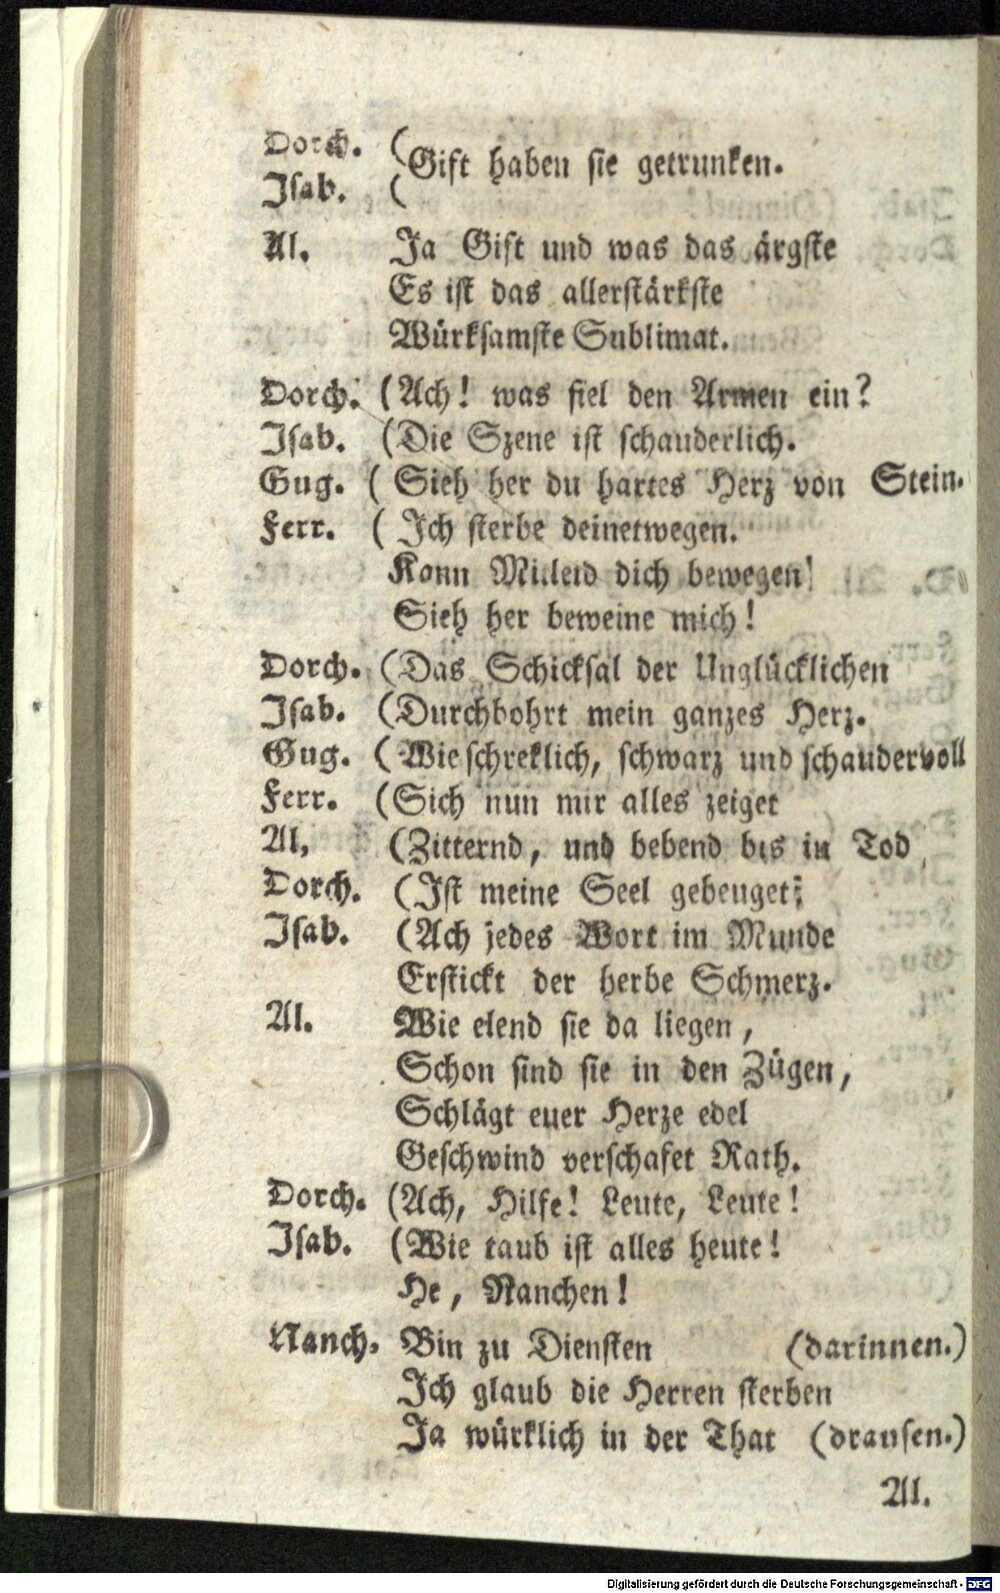 Dorch. (
Gift haben sie getrunken.
Isab. (
Al. Ja Gift und was das ärgste
Es ist das allerstärkste
Würksamste Sublimat.
Dorch. (Ach! was fiel den Armen ein?
Isab. (Die Szene ist schauderlich.
Gug. (Sieh her du hartes Herz von Stein.
Ferr. (Ich sterbe deinetwegen.
Kann Mitleid dich bewegen!
Sieh her beweine mich!
Dorch. (Das Schicksal der Unglücklichen
Isab. (Durchbohrt mein ganzes Herz.
Gug. (Wie schreklich, schwarz und schaudervoll
Ferr. (Sich nun mir alles zeiget
Al, (Zitternd, und bebend bis in Tod
Dorch. (Ist meine Seel gebeuget;
Isab. (Ach jedes Wort im Munde
Erstickt der herbe Schmerz.
Al. Wie elend sie da liegen,
Schon sind sie in den Zügen,
Schlägt euer Herze edel
Geschwind verschafet Rath.
Dorch. (Ach, Hilfe! Leute, Leute!
Isab. (Wie taub ist alles heute!
He, Nanchen!
Nanch. Bin zu Diensten (darinnen.)
Ich glaub die Herren sterben
Ja würklich in der That (drausen.)
Al.
Digitalisierung gefördert durch die Deutsche Forschungsgemeinschaft - DFG